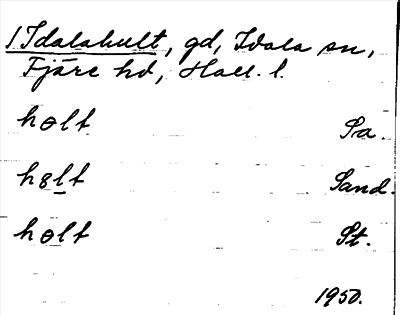 1 Idalahult, gd, Idala sn,
Fjäre hd, Hall. l.
holt Sa.
hølt Sand.
holt St.
1950.